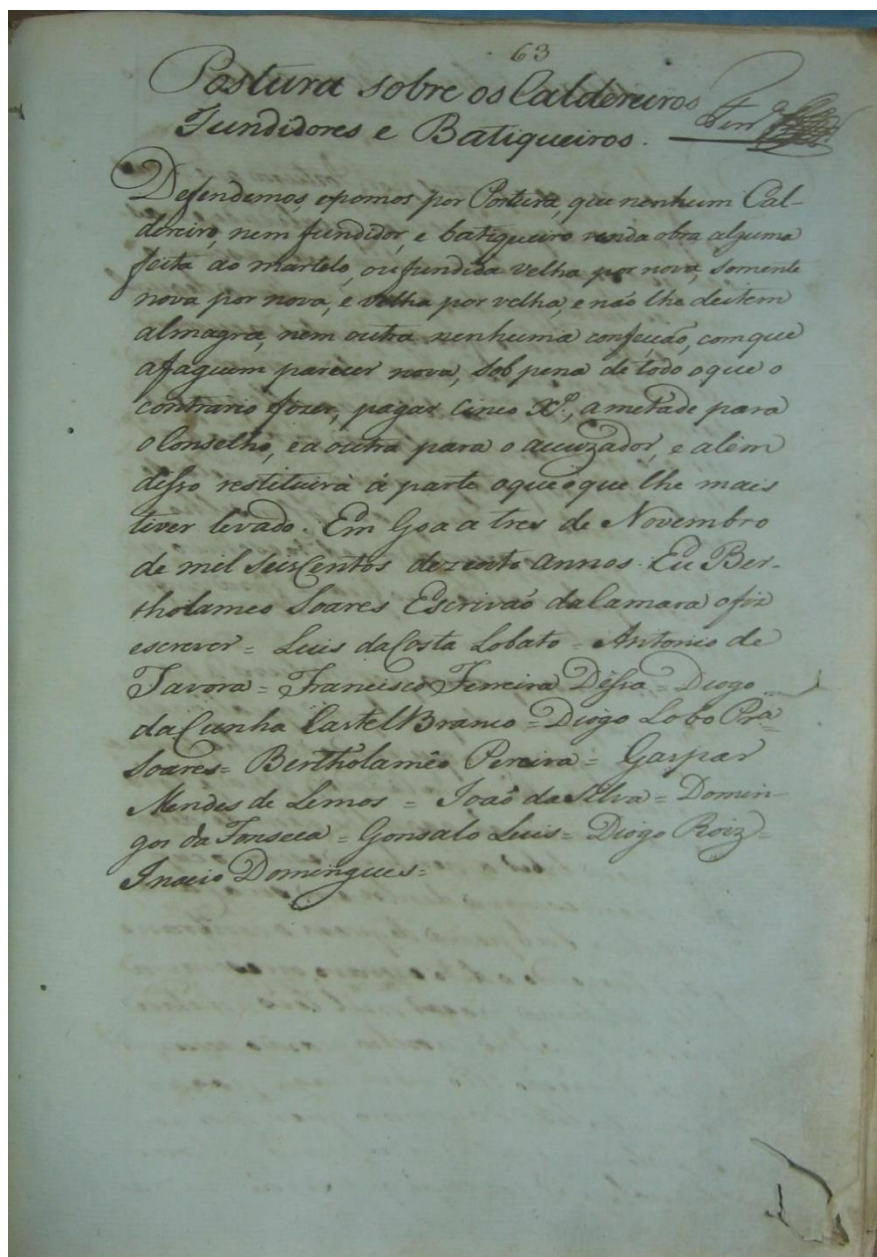 63
Postura sobre os Caldereiros
Fundidores e Batiqueiros.
Defendemos, epomos por Postura, que nenhum Cal-
dereiro, nem fundidor, e batiqueiro venda obra alguma
feita ao martelo, ou fundida velha por nova, somente
nova por nova, e velha por velha, e não lhe deitem
almagra, nem outra nenhuma confeição, com que
afaçum parecer nova, sob pena de todo o que o
contrario fizer, pagar cinco X.os, ametade para
o Conselho, e a outra para o acuzador, e alem
disso restituirà á parte oque oque lhe mais
tiver levado. Em Goa a tres de Novembro
de mil seis Centos dezouto annos. Eu Ber-
tholameo Soares Escrivaõ da Camara o fiz
escrever = Luis da Costa Lobato = Antonio de
Tavora = Francisco Ferreira Dessa = Diogo
da Cunha Castel Branco = Diogo Lobo Prã
Soares = Bertholamêo Pereira = Gaspar
Mendes de Lemos = Joaõ da Silva = Domin-
gos da Fonseca = Gonsalo Luis = Diogo Roiz =
Inacio Domingues =